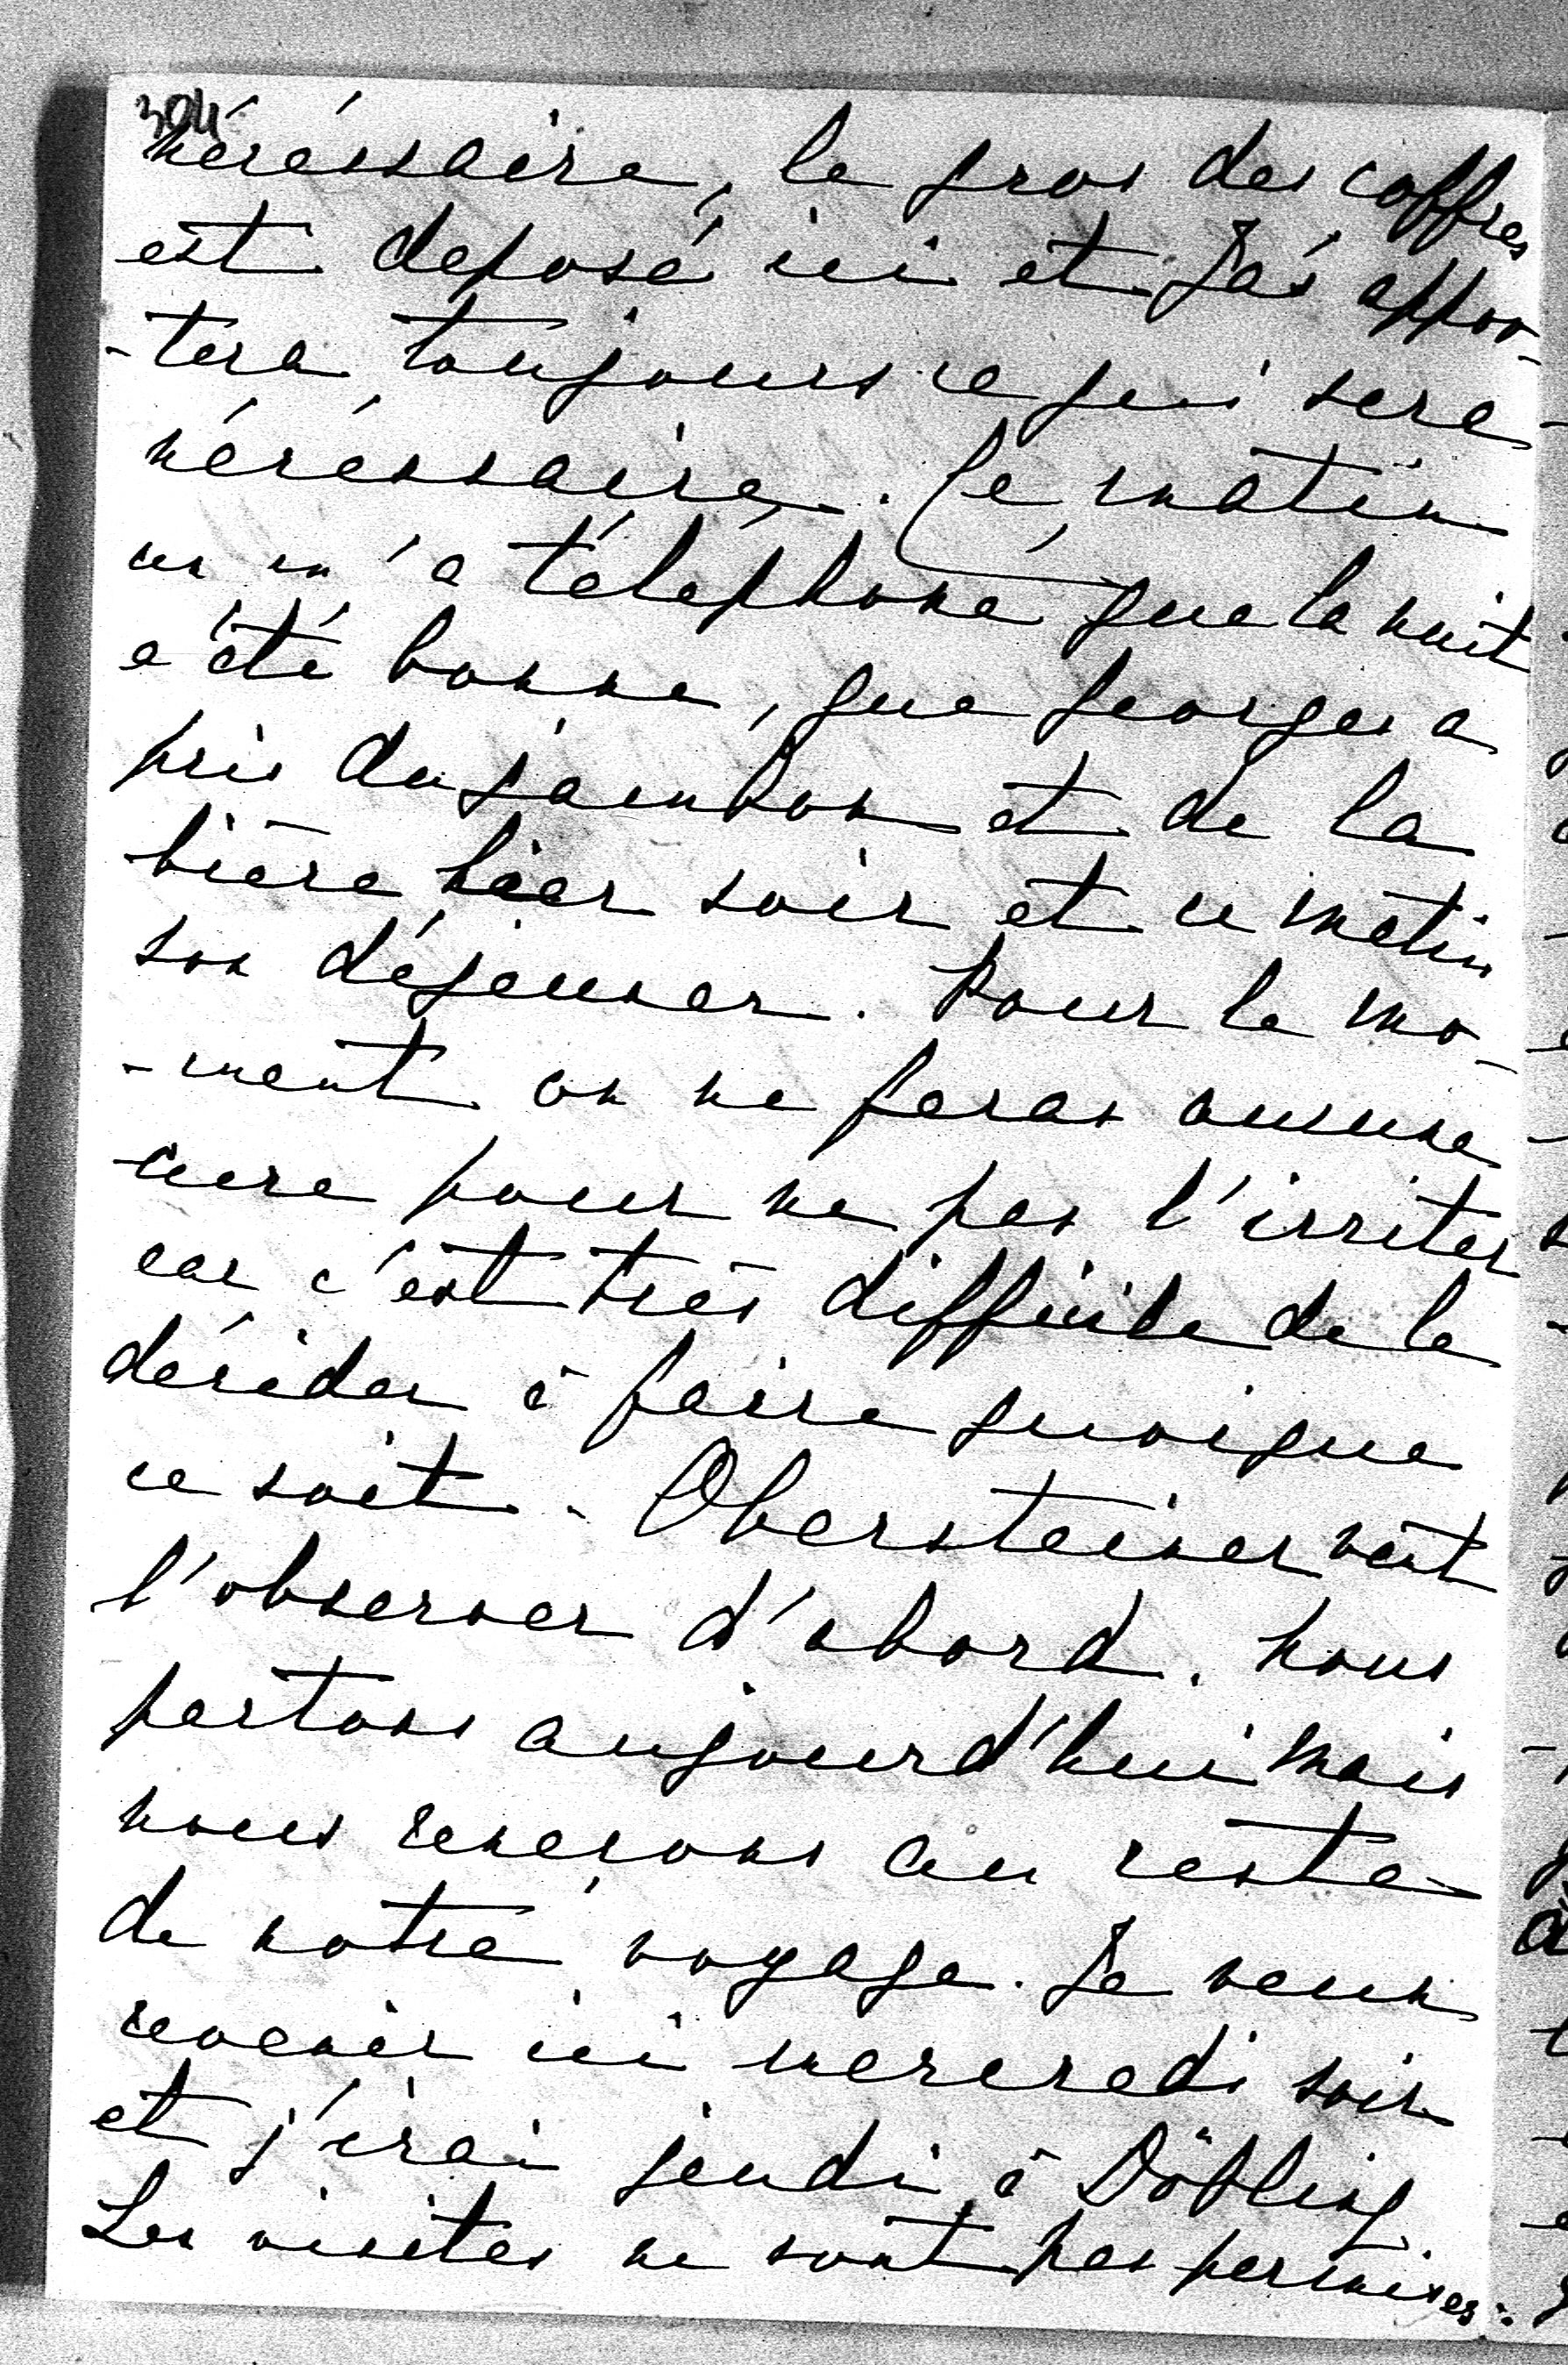 304
nécéssaire, le gros des coffres
est deposé ici et Jés appor-
-tera toujours ce qui sera
nécéssaire. Ce matin
on m'a téléphoné que la nuit
a été bonne, que Georges a
pris du jambon et de la
bière hier soir et ce matin
son déjeuner. Pour le mo-
-ment on ne feras aucune
cure pour ne pas l'irriter
car c'est très difficile de le
décider à faire quoique
ce soit. Obersteiner veut
l'observer d'abord. Nous
partons aujourd'hui mais
nous renonçons au reste
de notre voyage. Je veux
revenir ici mercredi soir
et j'irai jeudi à Döbling
Les visites ne sont pas permises.